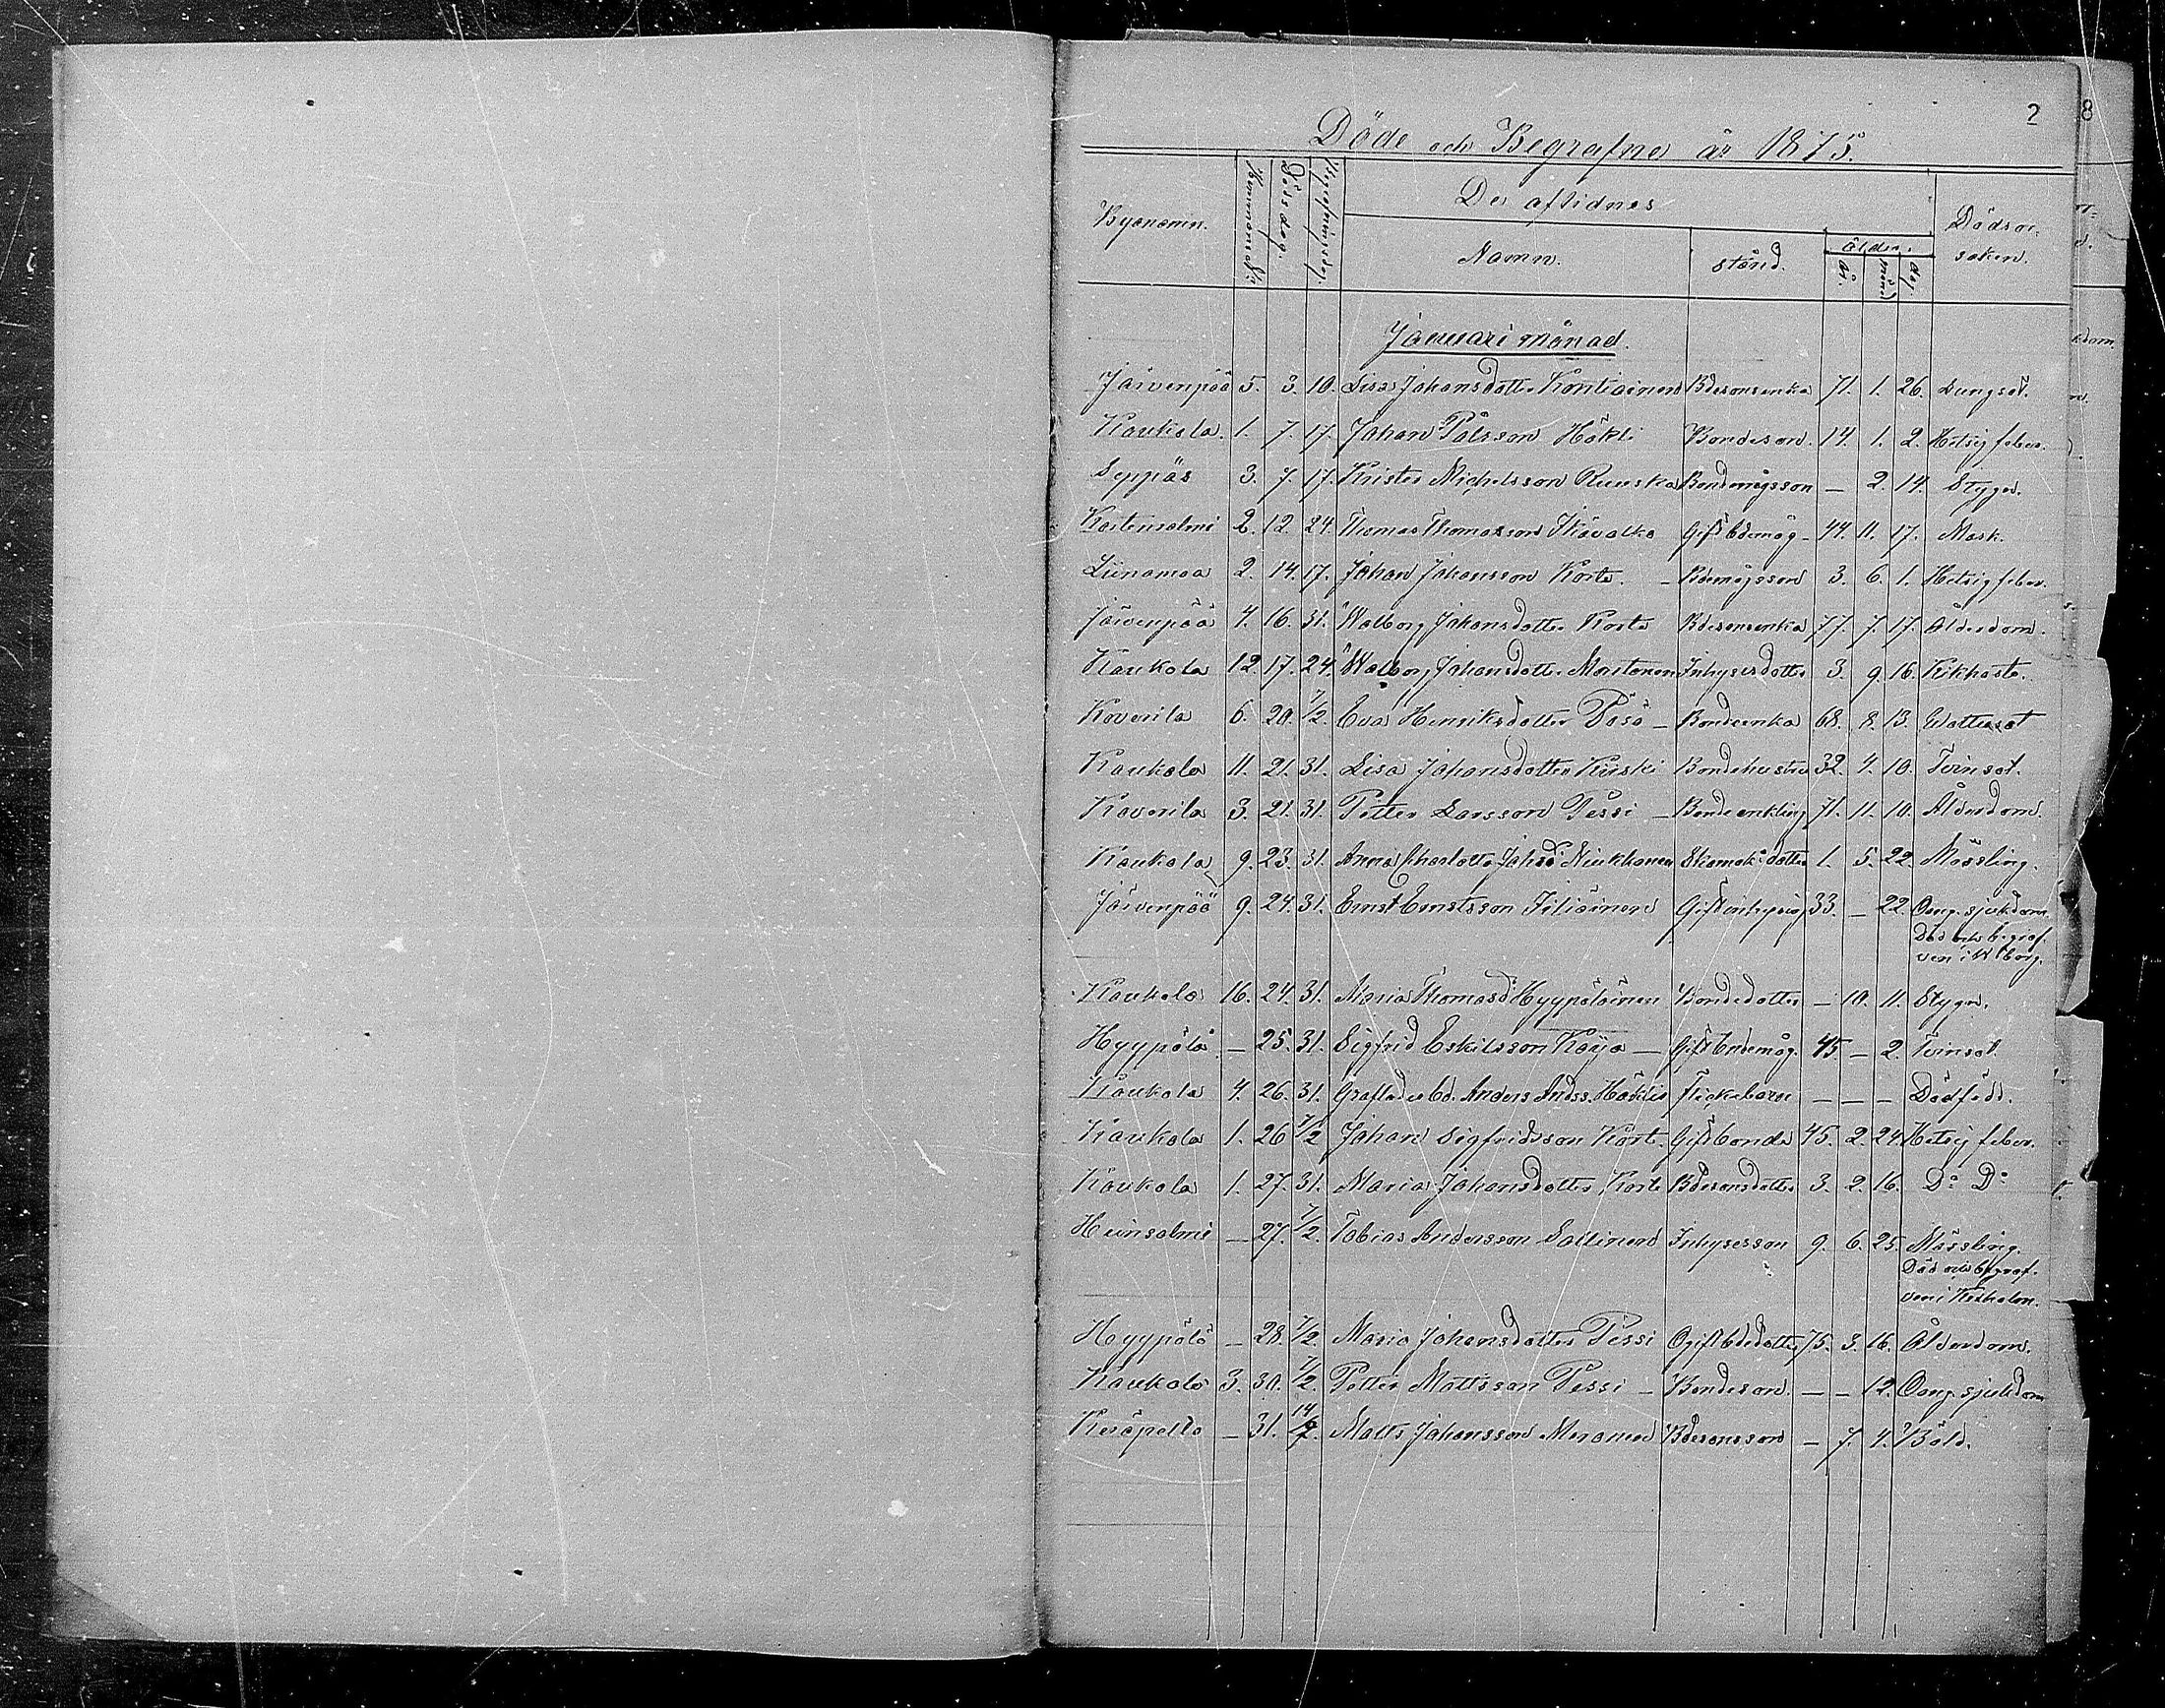 2
8
Döde och Begrafne år 1875.
Byanamn.
Hemmans No.
Dödsdag.
Begrafningsdag.
De aflidnes
Namn.
stånd.
Ålder.
År.
Månad
Dag.
Dödsor-
saken.
Januari månad.
Järvenpää 5. 3. 10. Lisa Johansdotter Kontiainen Bdesonsenka 71. 1. 26. Lungsot.
Kaukola. 1. 7. 17. Johan Pålsson Häkli Bondeson. 14. 1. 2. Hetsig feber.
Seppäs 3. 7. 17. Krister Michelsson Ruuska Bondemågsson — 2. 14. Stygn.
Kortensalmi 2. 12. 24. Thomas Thomasson Gift bdemåg - 44. 11. 17. Mask.
Liinamaa 2. 14. 17. Johan Johansson Korte. - Bdemågsson 3. 6. 1. Hetsig feber.
Järvenpää 4. 16. 31. Walborg Johansdotter Korte Bdesonsenka 77. 7. 17. Ålderdom.
Kaukola 12. 17. 24. Walborg Johansdotter Inhysesdotter 3. 9. 16. Kikhosta.
Koverila 6. 20. 7/2. Eva Henriksdotter Pösö - Bondeenka 68. 8. 13. Wattusot
Kaukola 11. 21. 31. Lisa Johansdotter Kiiski Bondehustru 32. 4. 10. Tvinsot.
Koverila 3. 21. 31. Petter Larsson Pessi - Bondeenkling 71. 11. 10. Ålderdom.
Kaukola 9. 23. 31. Anna Charlotta Johsd. Niukkanen Skomak. dotter 1. 5. 22. Mässling.
Järvenpää 9. 24. 31. Ernst Ernstsson Gift inhysing 33. — 22. Oang. sjukdom.
Död och begraf-
ven i Wiborg.
Kaukola 16. 24. 31. Maria Thomasd Hyypöläinen Bondedotter — 10. 11. Stygn.
Hyypölä — 25. 31. Sigfrid Eskilsson Kaija — Gift bdemåg. 45 — 2. Tvinsot.
Kaukola 4. 26. 31. Anders Andss. Häkli Flickebarn — — — Dödfödd.
Kaukola 1. 26 7/2 Johan Sigfridsson Kort. Gift bonde 45. 2. 24. Hetsig feber.
Kaukola 1. 27. 31. Maria Johansdotter Korte Bdesonsdotter 3. 2. 16. Do Do
Heinsalmi — 27. 7/2. Tobias Andersson Sallinen Inhysesson 9. 6. 25. Mässling.
Död och begraf-
ven i Kexholm.
Hyypölä — 28. 7/2. Maria Johansdotter Pessi Ogift bdedotter 75. 3. 16. Ålderdom.
Kaukola 3. 30. 7/2. Petter Mattsson Pessi - Bondeson. — — 12. Oang. sjukdom
Keräpelto — 31. 14/2. Matts Johansson Meronen Bdesonsson — 7. 4. Böld.